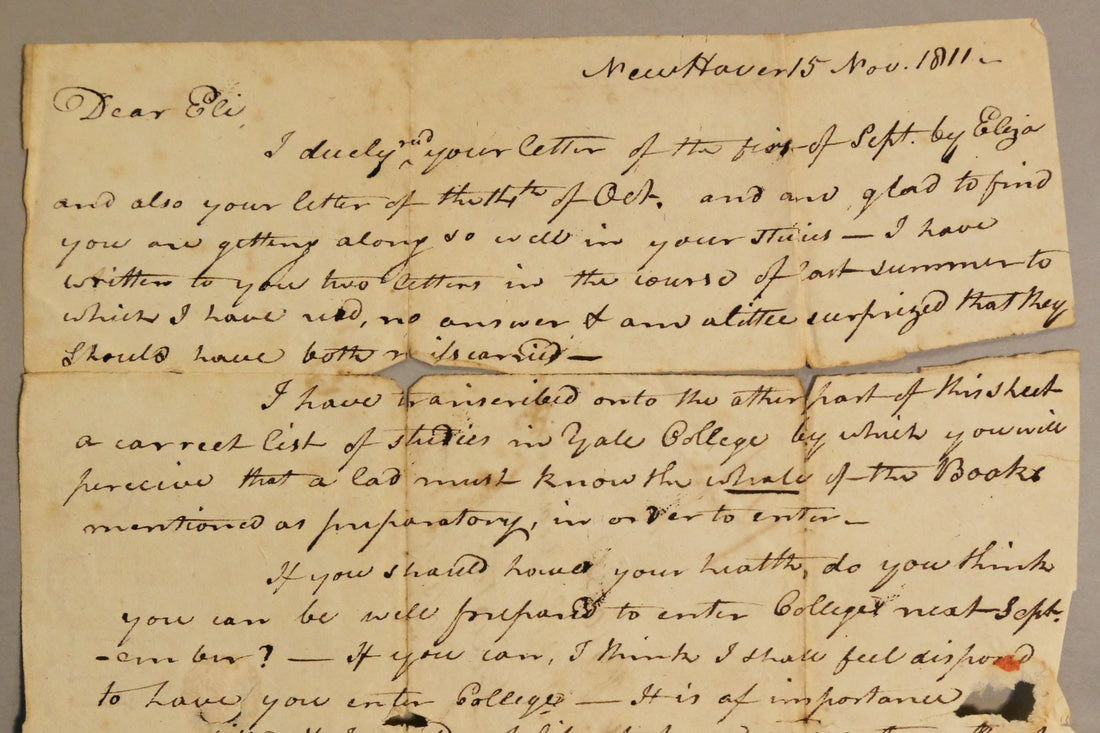 New Haven 15 Nov. 1811 -
Dear Eli,
I duely recd your letter of the firs of Sept. by Eliza
and also your letter of the 14th of Oct. and am glad to find
you are getting along so well in your studies — I have
written to you two letters in the course of last summer to
which I have recd, no answer & am a little surprized that they
should have both miscarried —
I have transcribed onto the other part of this sheet
a correct list of studies in Yale College by which you will
percieve that a lad must know the whole of the Books
mentioned as preparatory, in order to enter —
If you should have your health, do you think
you can be well prepared to enter College next Sept-
-ember? — If you can, I think I shall feel disposed
to have you enter College — It is of importance